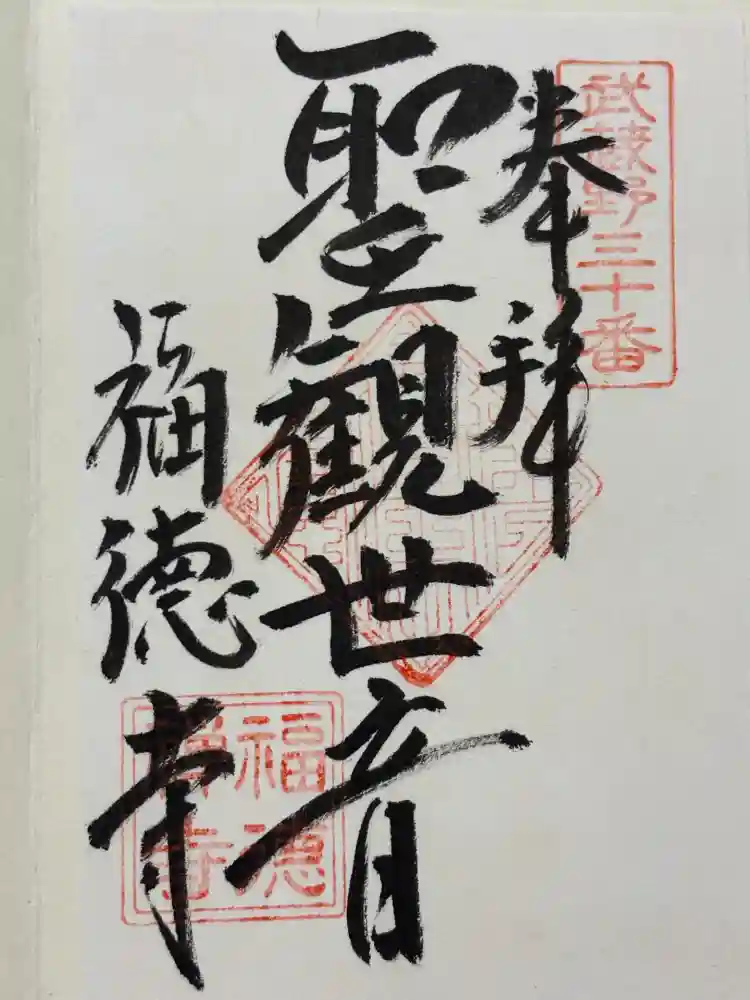 武蔵野三十番
奉拝
聖観世音
福徳寺
福徳
禅寺